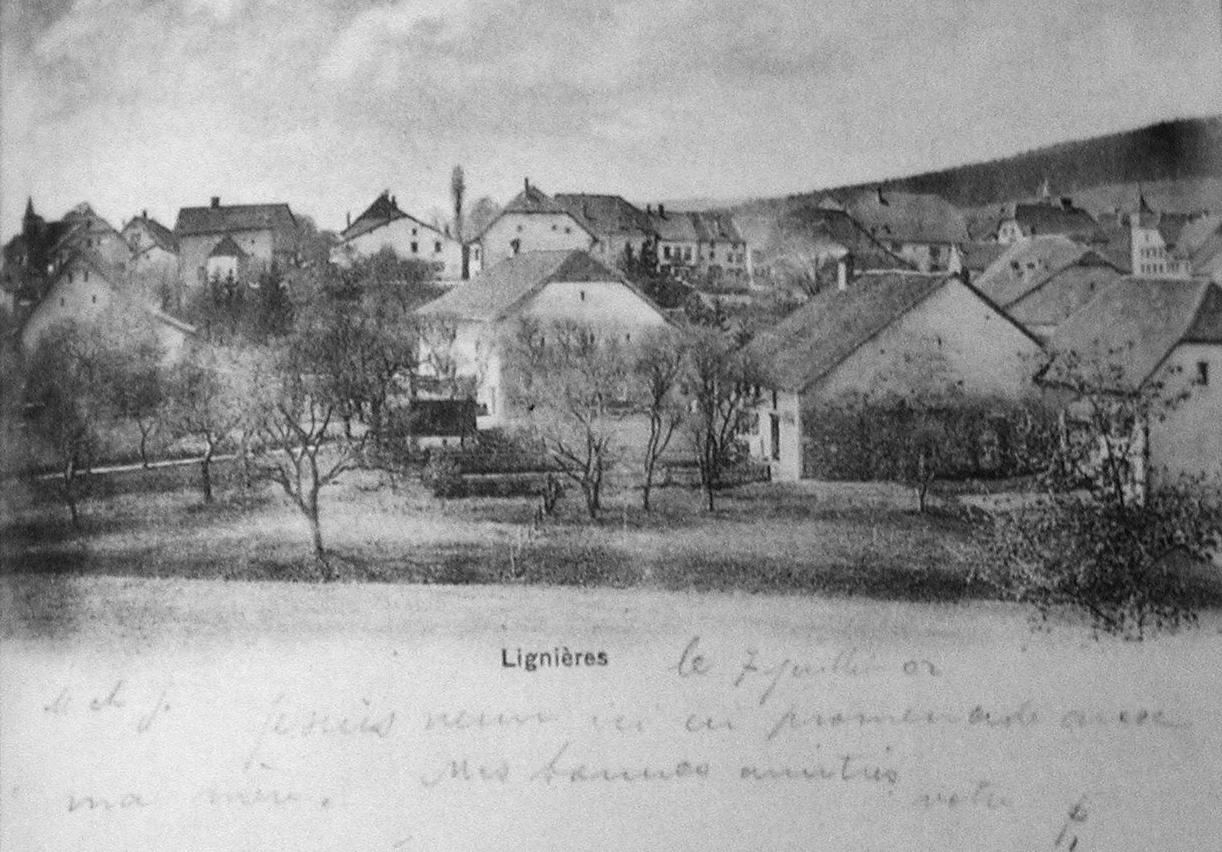 Lignières le 7 juillet 02
M ch J. je suis venu ici en promenade avec
ma mère. Mes bonnes amitiés
votre